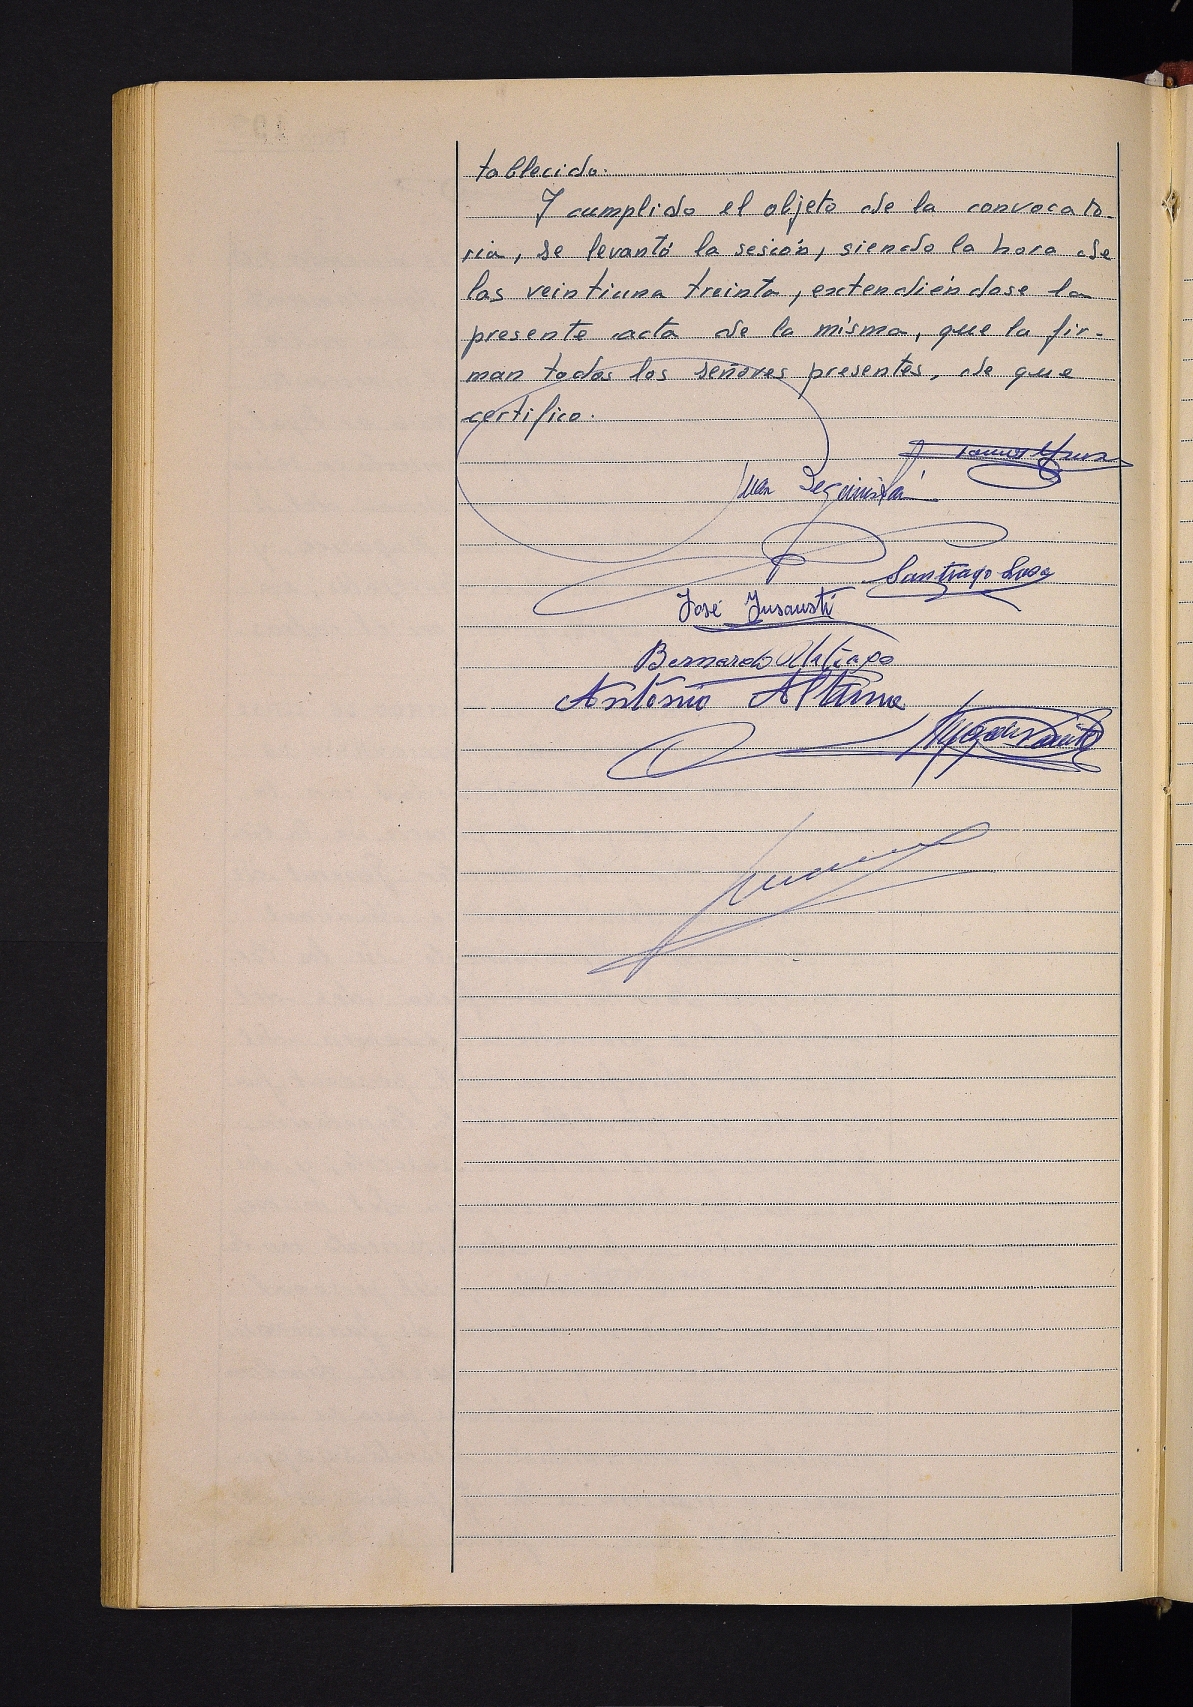 tablecido.
Y cumplido el objeto de la convocato-
ria, se levantó la sesión, siendo la hora de
las veintiuna treinta, extendiéndose la
presente acta de la misma, que la fir-
man todos los señores presentes, de que
certifico.
Juan
Santiago
José Insausti
Bernardo
Antonio Altuna